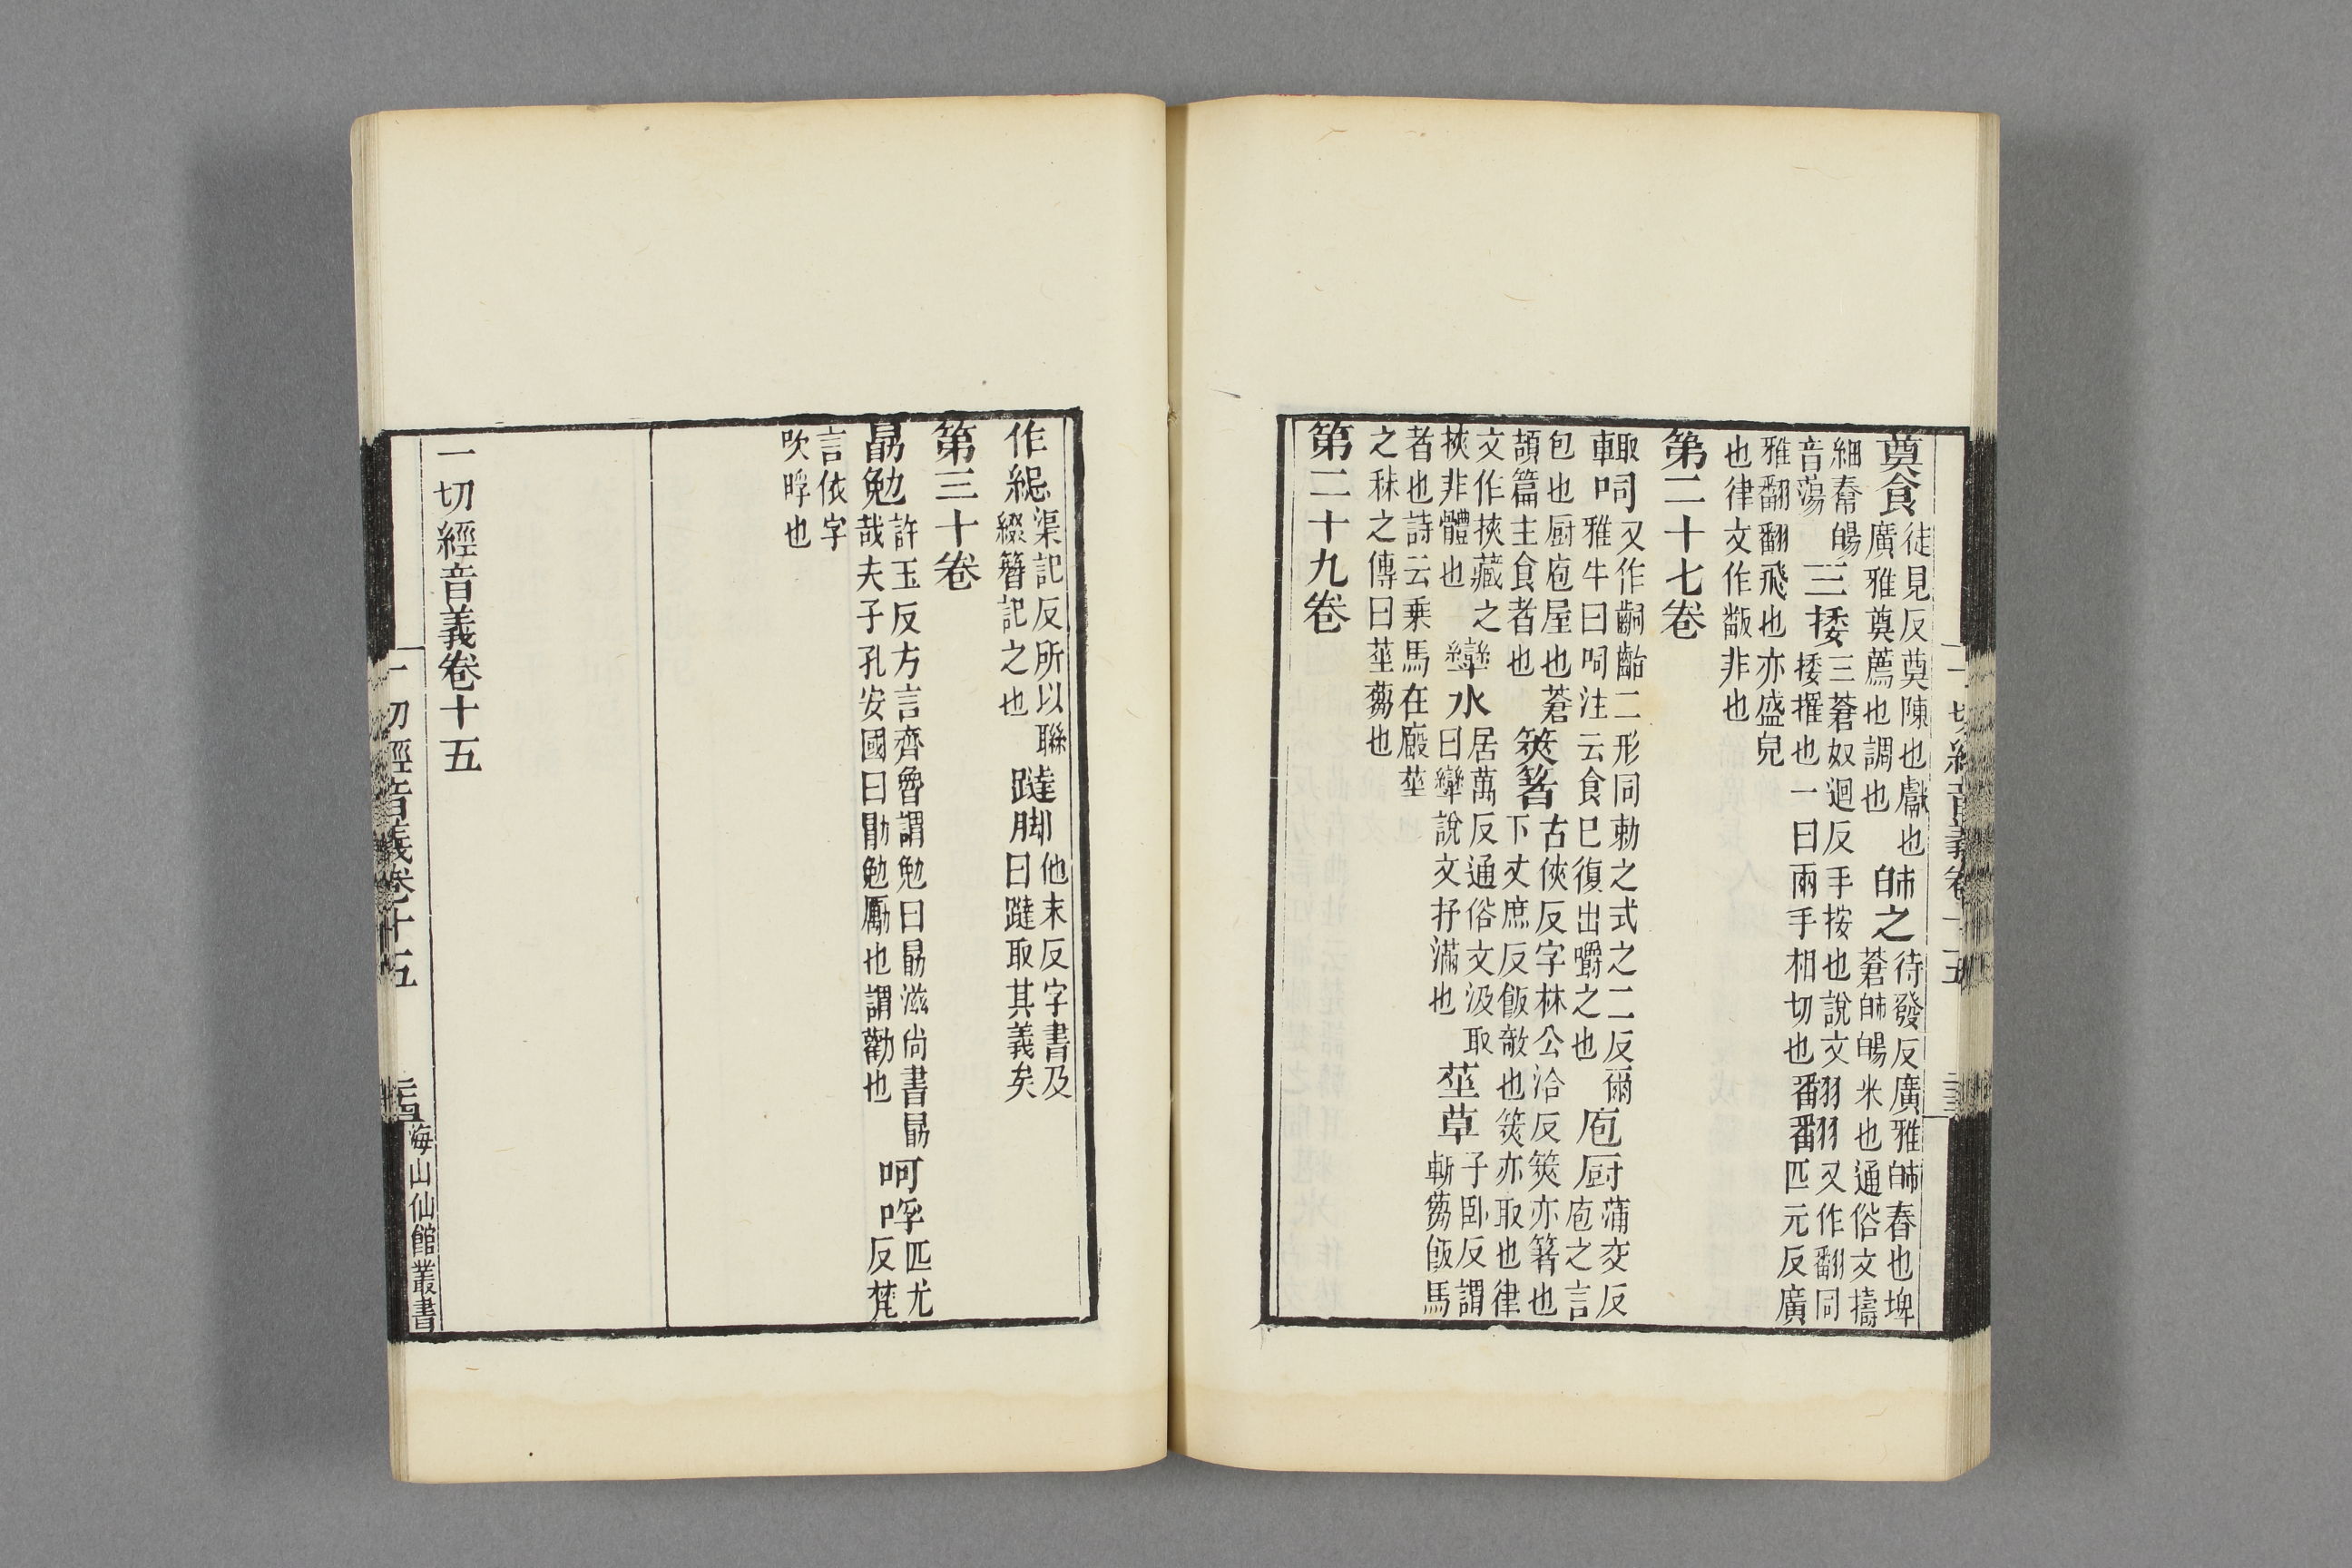 奠食徒見反奠陳也獻也廣雅奠薦也調也䏽之待發反廣雅䏽舂也埤蒼䏽䬗米也通俗文擣
細舂䬗音蕩三捼三蒼奴迴反手按也說文捼摧也一曰兩手相切也翩翩又作翻同番番匹元反廣
雅翻翻飛也亦盛皃也律文作㽹非也
第二十七卷
呞又作齝齝二形同勑之式之二反爾雅牛曰呞注云食巳復出嚼之也庖厨蒲交反庖之言
包也厨庖屋也蒼頡篇主食者也筴箸古俠反字林公洽反筴亦箸也下丈庶反飯敧也筴亦取也律
文作挾藏之挾非體也㪺水居萬反通俗文汲取曰㪺說文抒滿也莝草子卧反謂斬芻飯馬
者也詩云乗馬在廄莝之秣之傳曰莝芻也
第二十九卷
作䋟渠記反所以聯綴簪記之也躂脚他末反字書及曰躂取其義矣
第三十卷
勗勉許玉反方言齊魯謂勉曰勗滋尚書勗哉夫子孔安國曰勖勉厲也謂勸也呵哹匹尤反梵
言依字吹哹也
一切經音義卷十五
一切經音義卷十五
海山仙館叢書